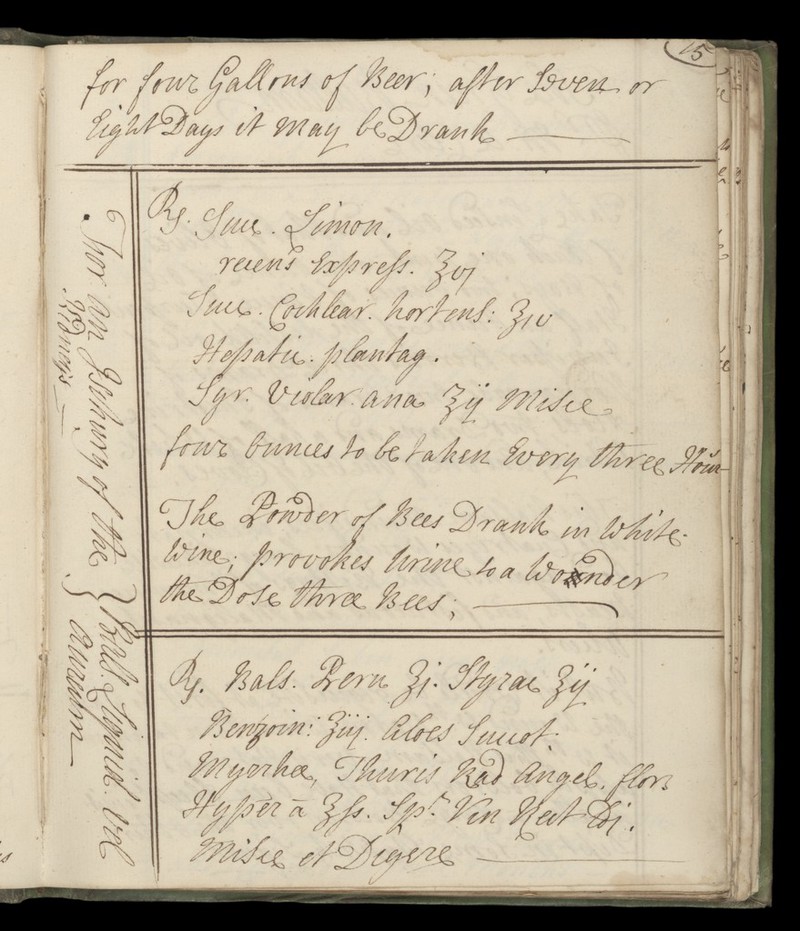 15
for four Gallons of Beer; after Seven or
Eight Days it may be Drank
For an Ischury of the
Kidneys
℞. Succ. Limon.
recens Express. ℥vj
Succ. Cochlear. hortens: ℥iv
Hepatic. plantag.
Syr. Violar. ana ℥ij Misce
four Ounces to be taken Every three Hour
The Powder of Bees Drank in White-
Wine; provokes Urine to a Wonder
the Dose three Bees;
Ball. Liquid. vel
aureum
℞. Bals. Peru ℥j. Styrac ℥ij
Benzoin: ℥iij. Aloes Succot.
Myrrhæ, Thuris Rad Angel. flor
Hyper ā ℥ss. Spt. Vin Rect ℔j.
Misce et Digere